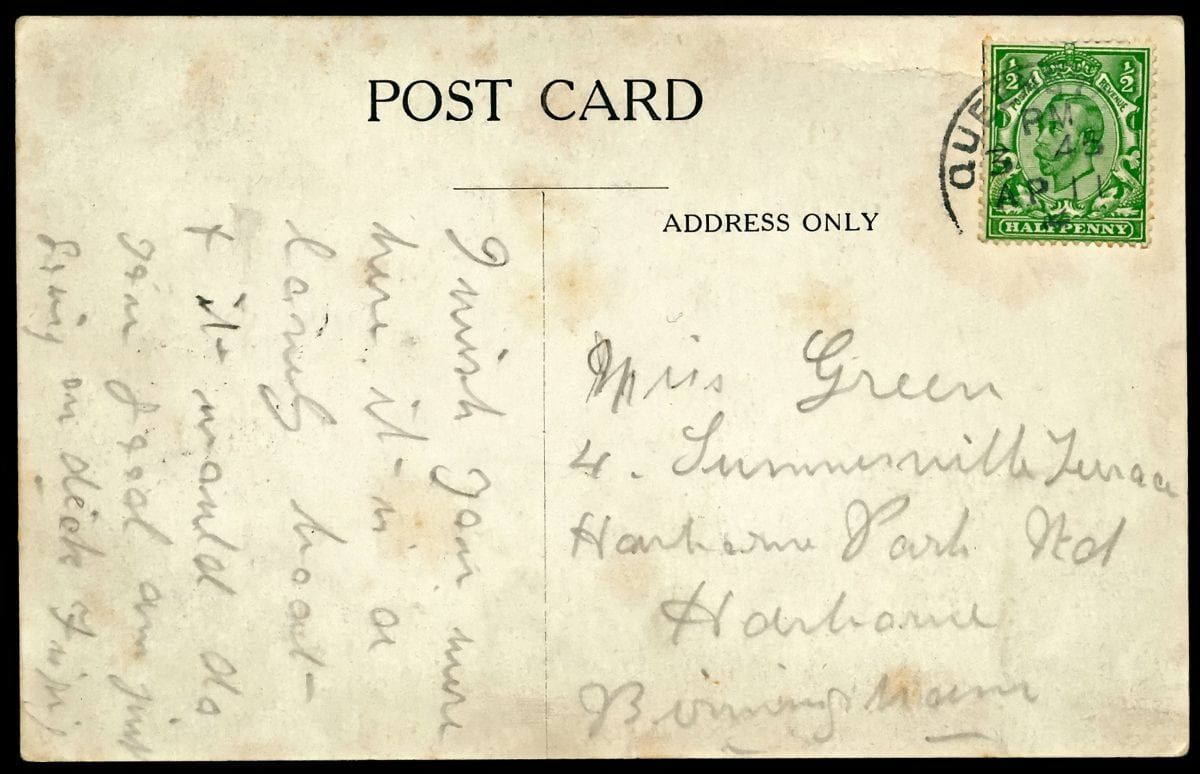 POST CARD
ADDRESS ONLY
½ ½
POSTAGE REVENUE
HALFPENNY
QUEE
PM
3 45
AP 11
I wish you were
here. it is a
lovely boat
& it would do
you good am just
going on deck
Miss Green
4. Summerville Terrace
Harborne Park Rd
Harborne
Birmingham